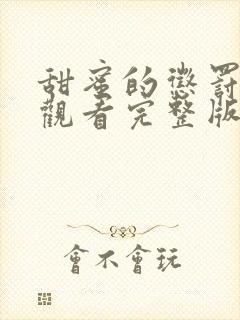 甜蜜的懲罰
觀看完整版
會不會玩